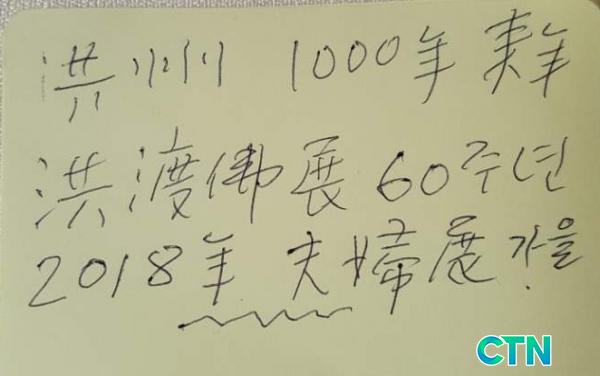 洪州 1000年 来年
洪渡佛展 60주년
2018年 夫婦展 가을
CTN